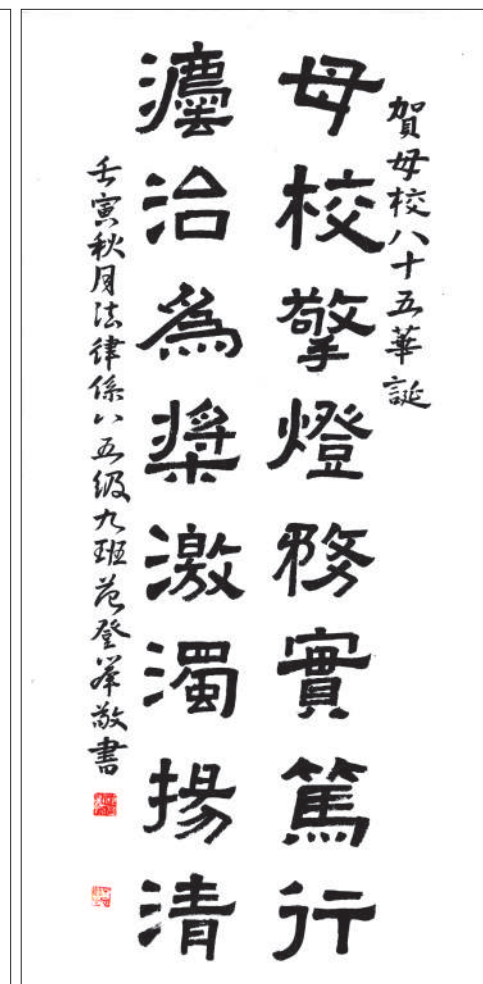 賀母校八十五華誕
母校擎燈務實篤行
灋治為槳激濁揚清
壬寅秋月法律係八五級九班范登峯敬書